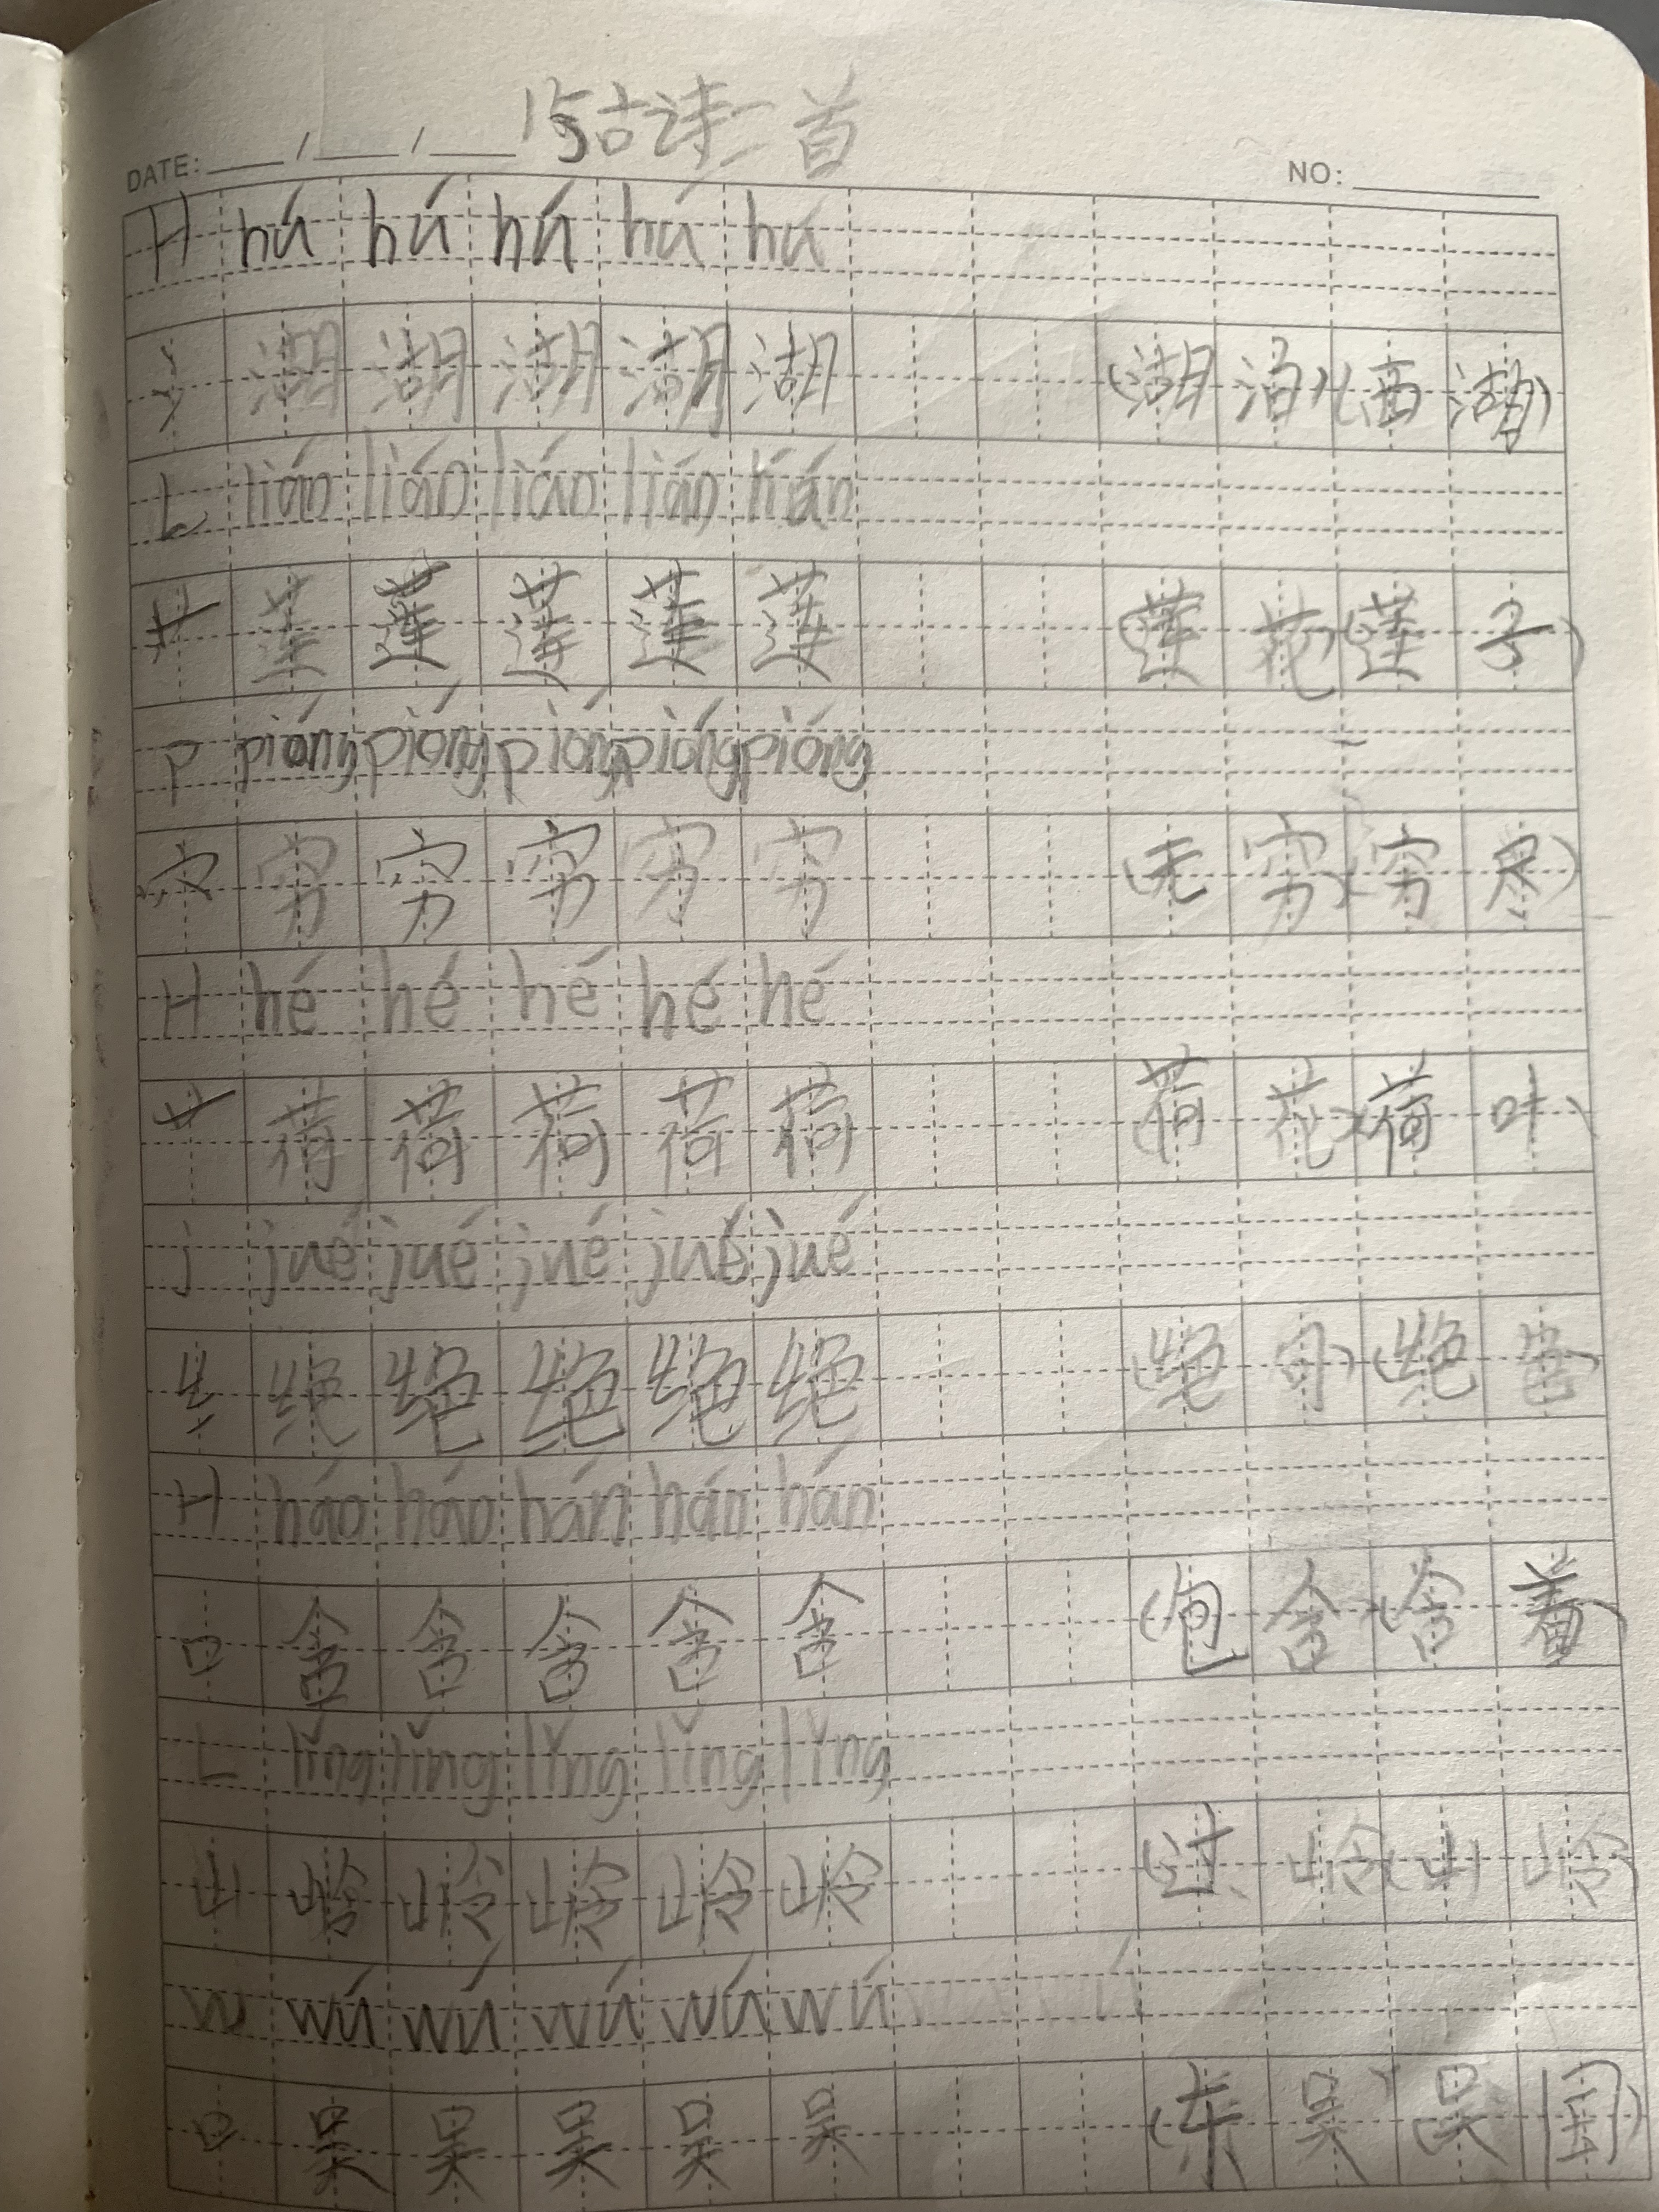 DATE: / / 15古诗二首 NO:
H hú hú hú hú hú
氵 湖 湖 湖 湖 湖 (湖泊)(西湖)
L lián lián lián lián lián
艹 莲 莲 莲 莲 莲 (莲花)(莲子)
P pióng pióng pióng pióng pióng
穴 穷 穷 穷 穷 穷 (无穷)(穷尽)
H hé hé hé hé hé
艹 荷 荷 荷 荷 荷 (荷花)(荷叶)
j jué jué jué jué jué
纟 绝 绝 绝 绝 绝 (绝句)(绝
H hán hán hán hán hán
口 含 含 含 含 含 (包含)(含着)
L lǐng lǐng lǐng lǐng lǐng
山 岭 岭 岭 岭 岭 (过岭)(山岭)
W wú wú wú wú wú
口 吴 吴 吴 吴 吴 (东吴)(吴国)